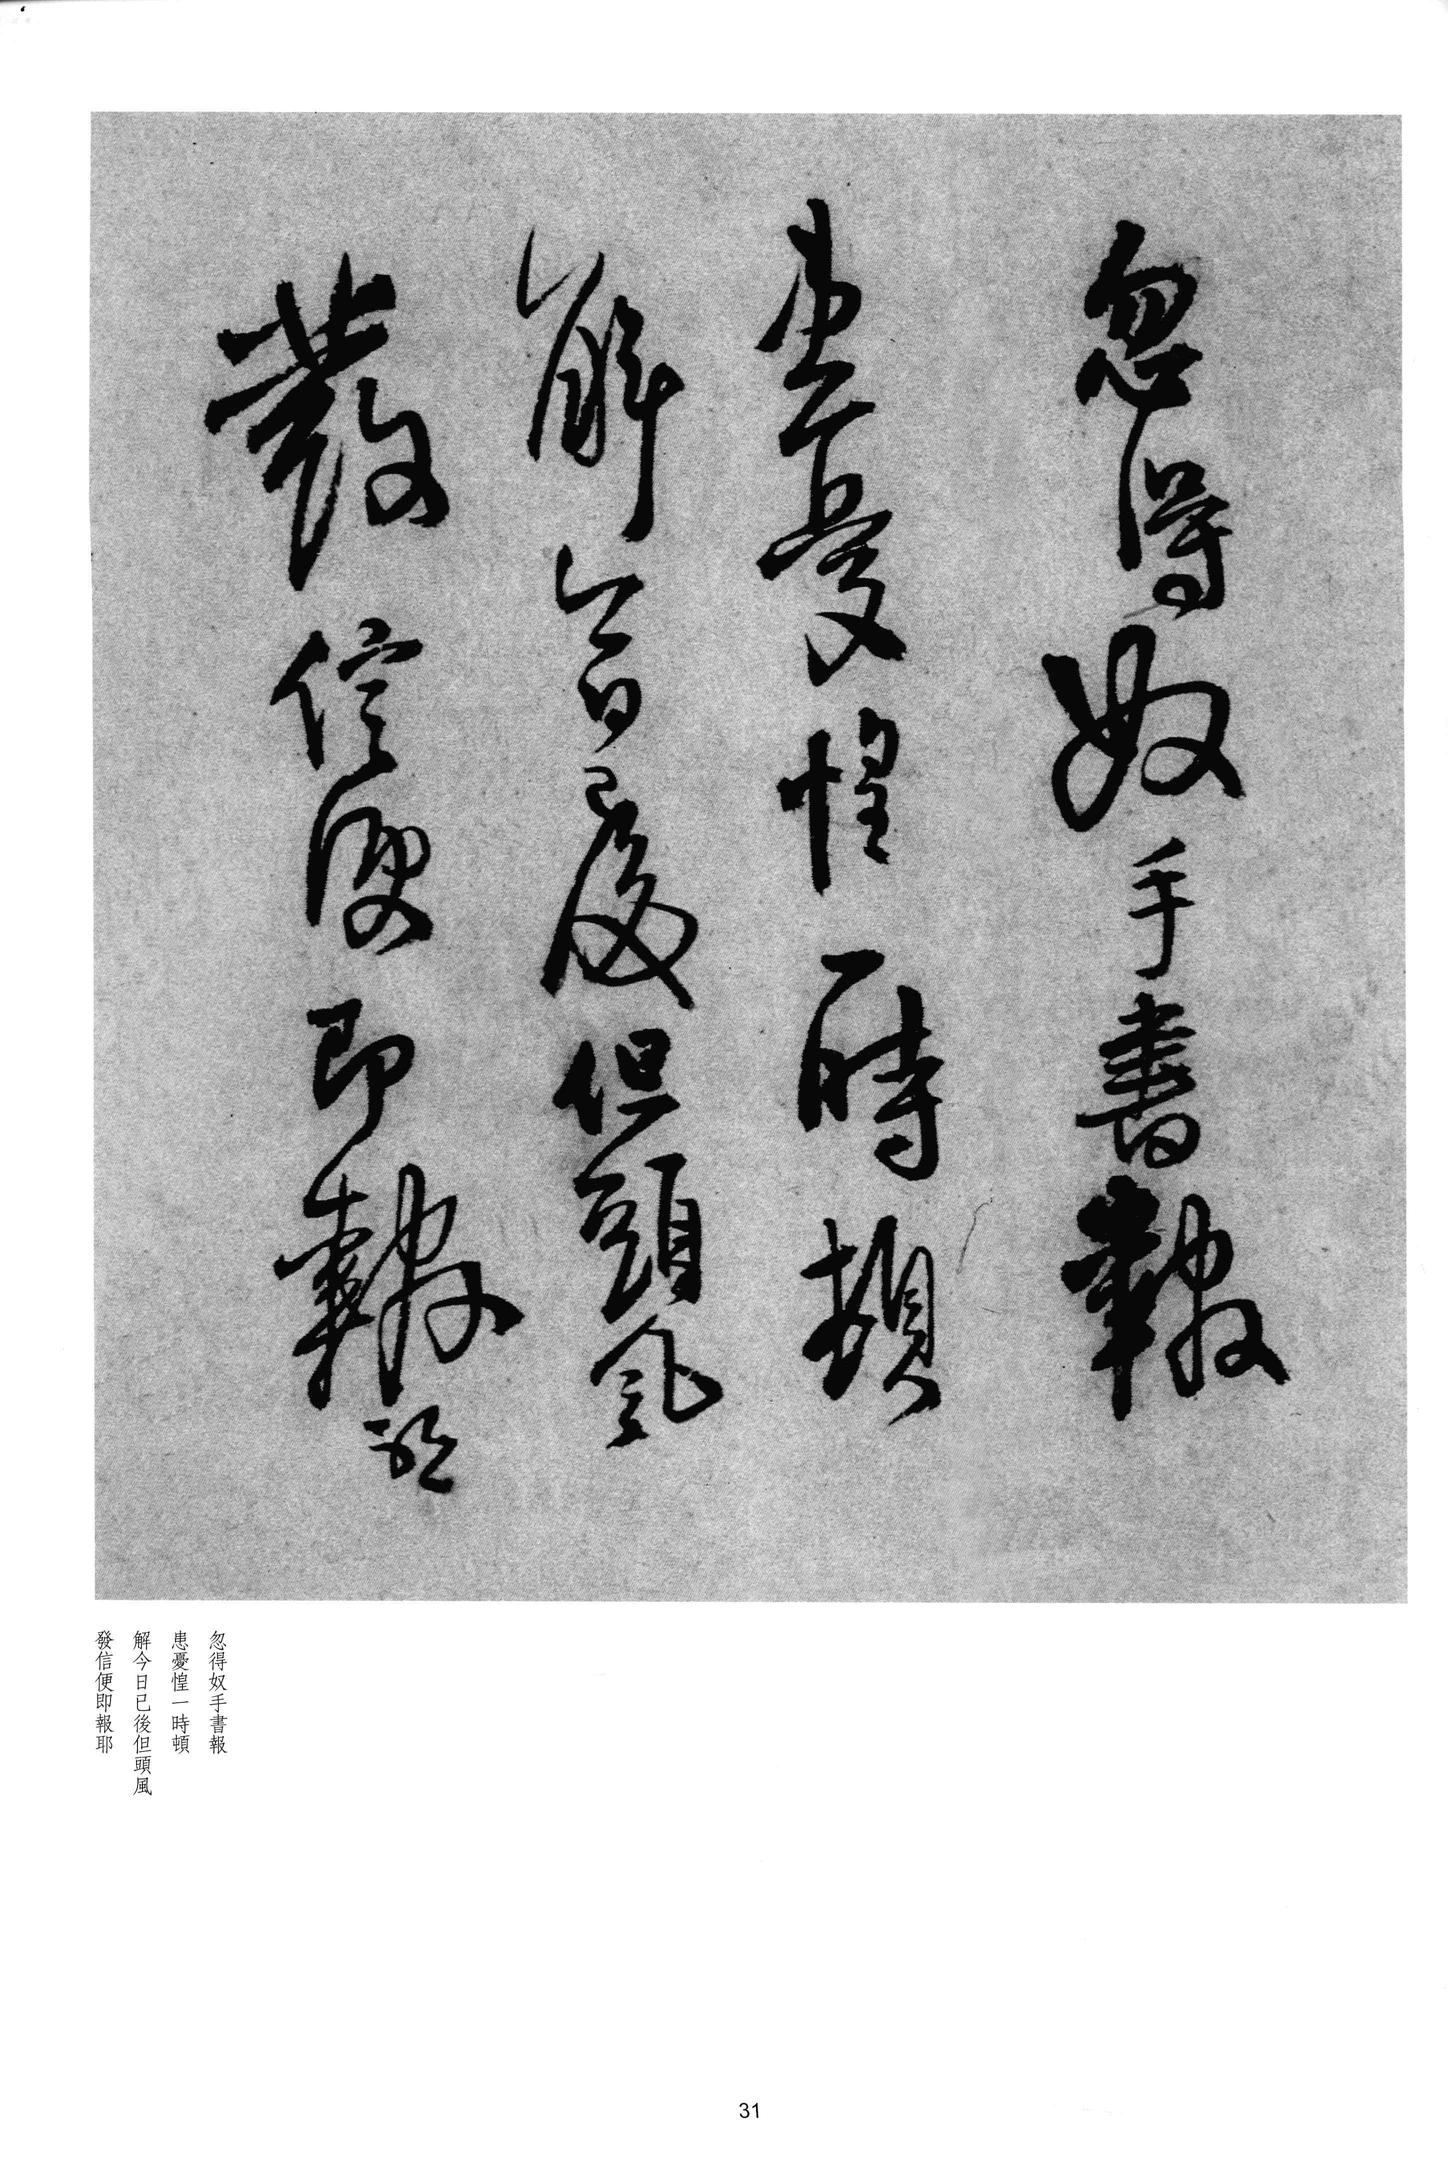 忽得奴手書報
患憂惶一時頓
解今日已後但頭風
發信便即報耶
忽得奴手書報
患憂惶一時頓
解今日已後但頭風
發信便即報耶
31